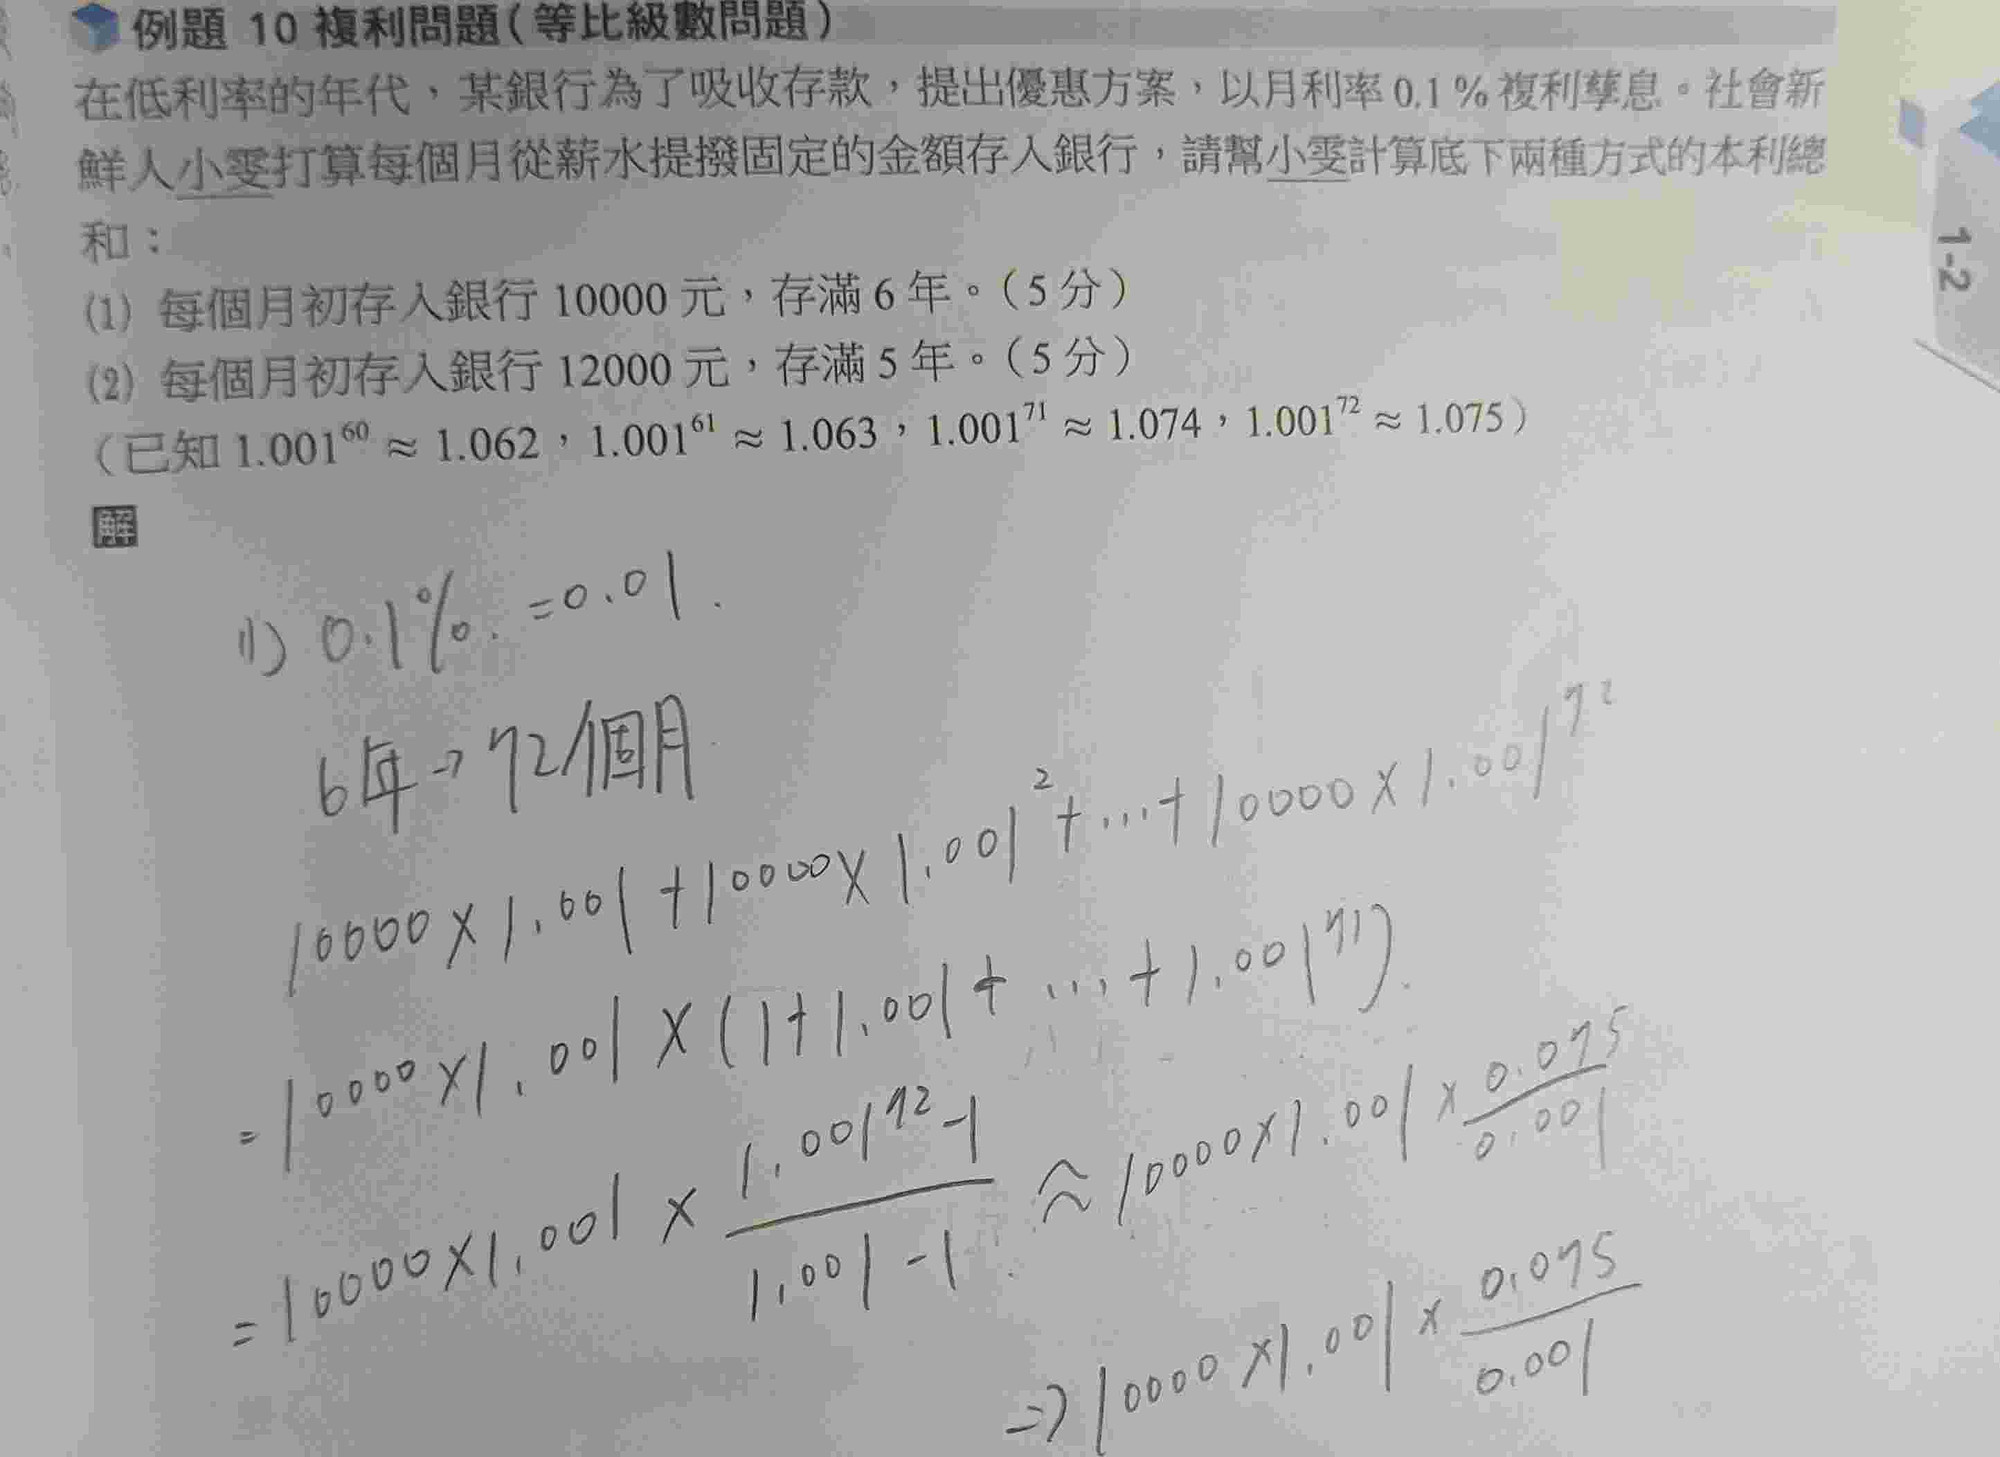 例題 10 複利問題（等比級數問題）
在低利率的年代，某銀行為了吸收存款，提出優惠方案，以月利率 0.1％複利孳息。社會新
鮮人小雯打算每個月從薪水提撥固定的金額存入銀行，請幫小雯計算底下兩種方式的本利總
和：
(1) 每個月初存入銀行 10000 元，存滿 6 年。（5 分）
(2) 每個月初存入銀行 12000 元，存滿 5 年。（5 分）
（已知 1.001^60 ≈ 1.062，1.001^61 ≈ 1.063，1.001^71 ≈ 1.074，1.001^72 ≈ 1.075）
1-2
解
(1) 0.1%. =0.01.
6年→72個月
10000×1.001+10000×1.001^2+…+10000×1.001^72
=10000×1.001×(1+1.001+…+1.001^71).
=10000×1.001×(1.001^72-1)/(1.001-1) ≈10000×1.001×0.075/0.001
⇒10000×1.001×0.075/0.001